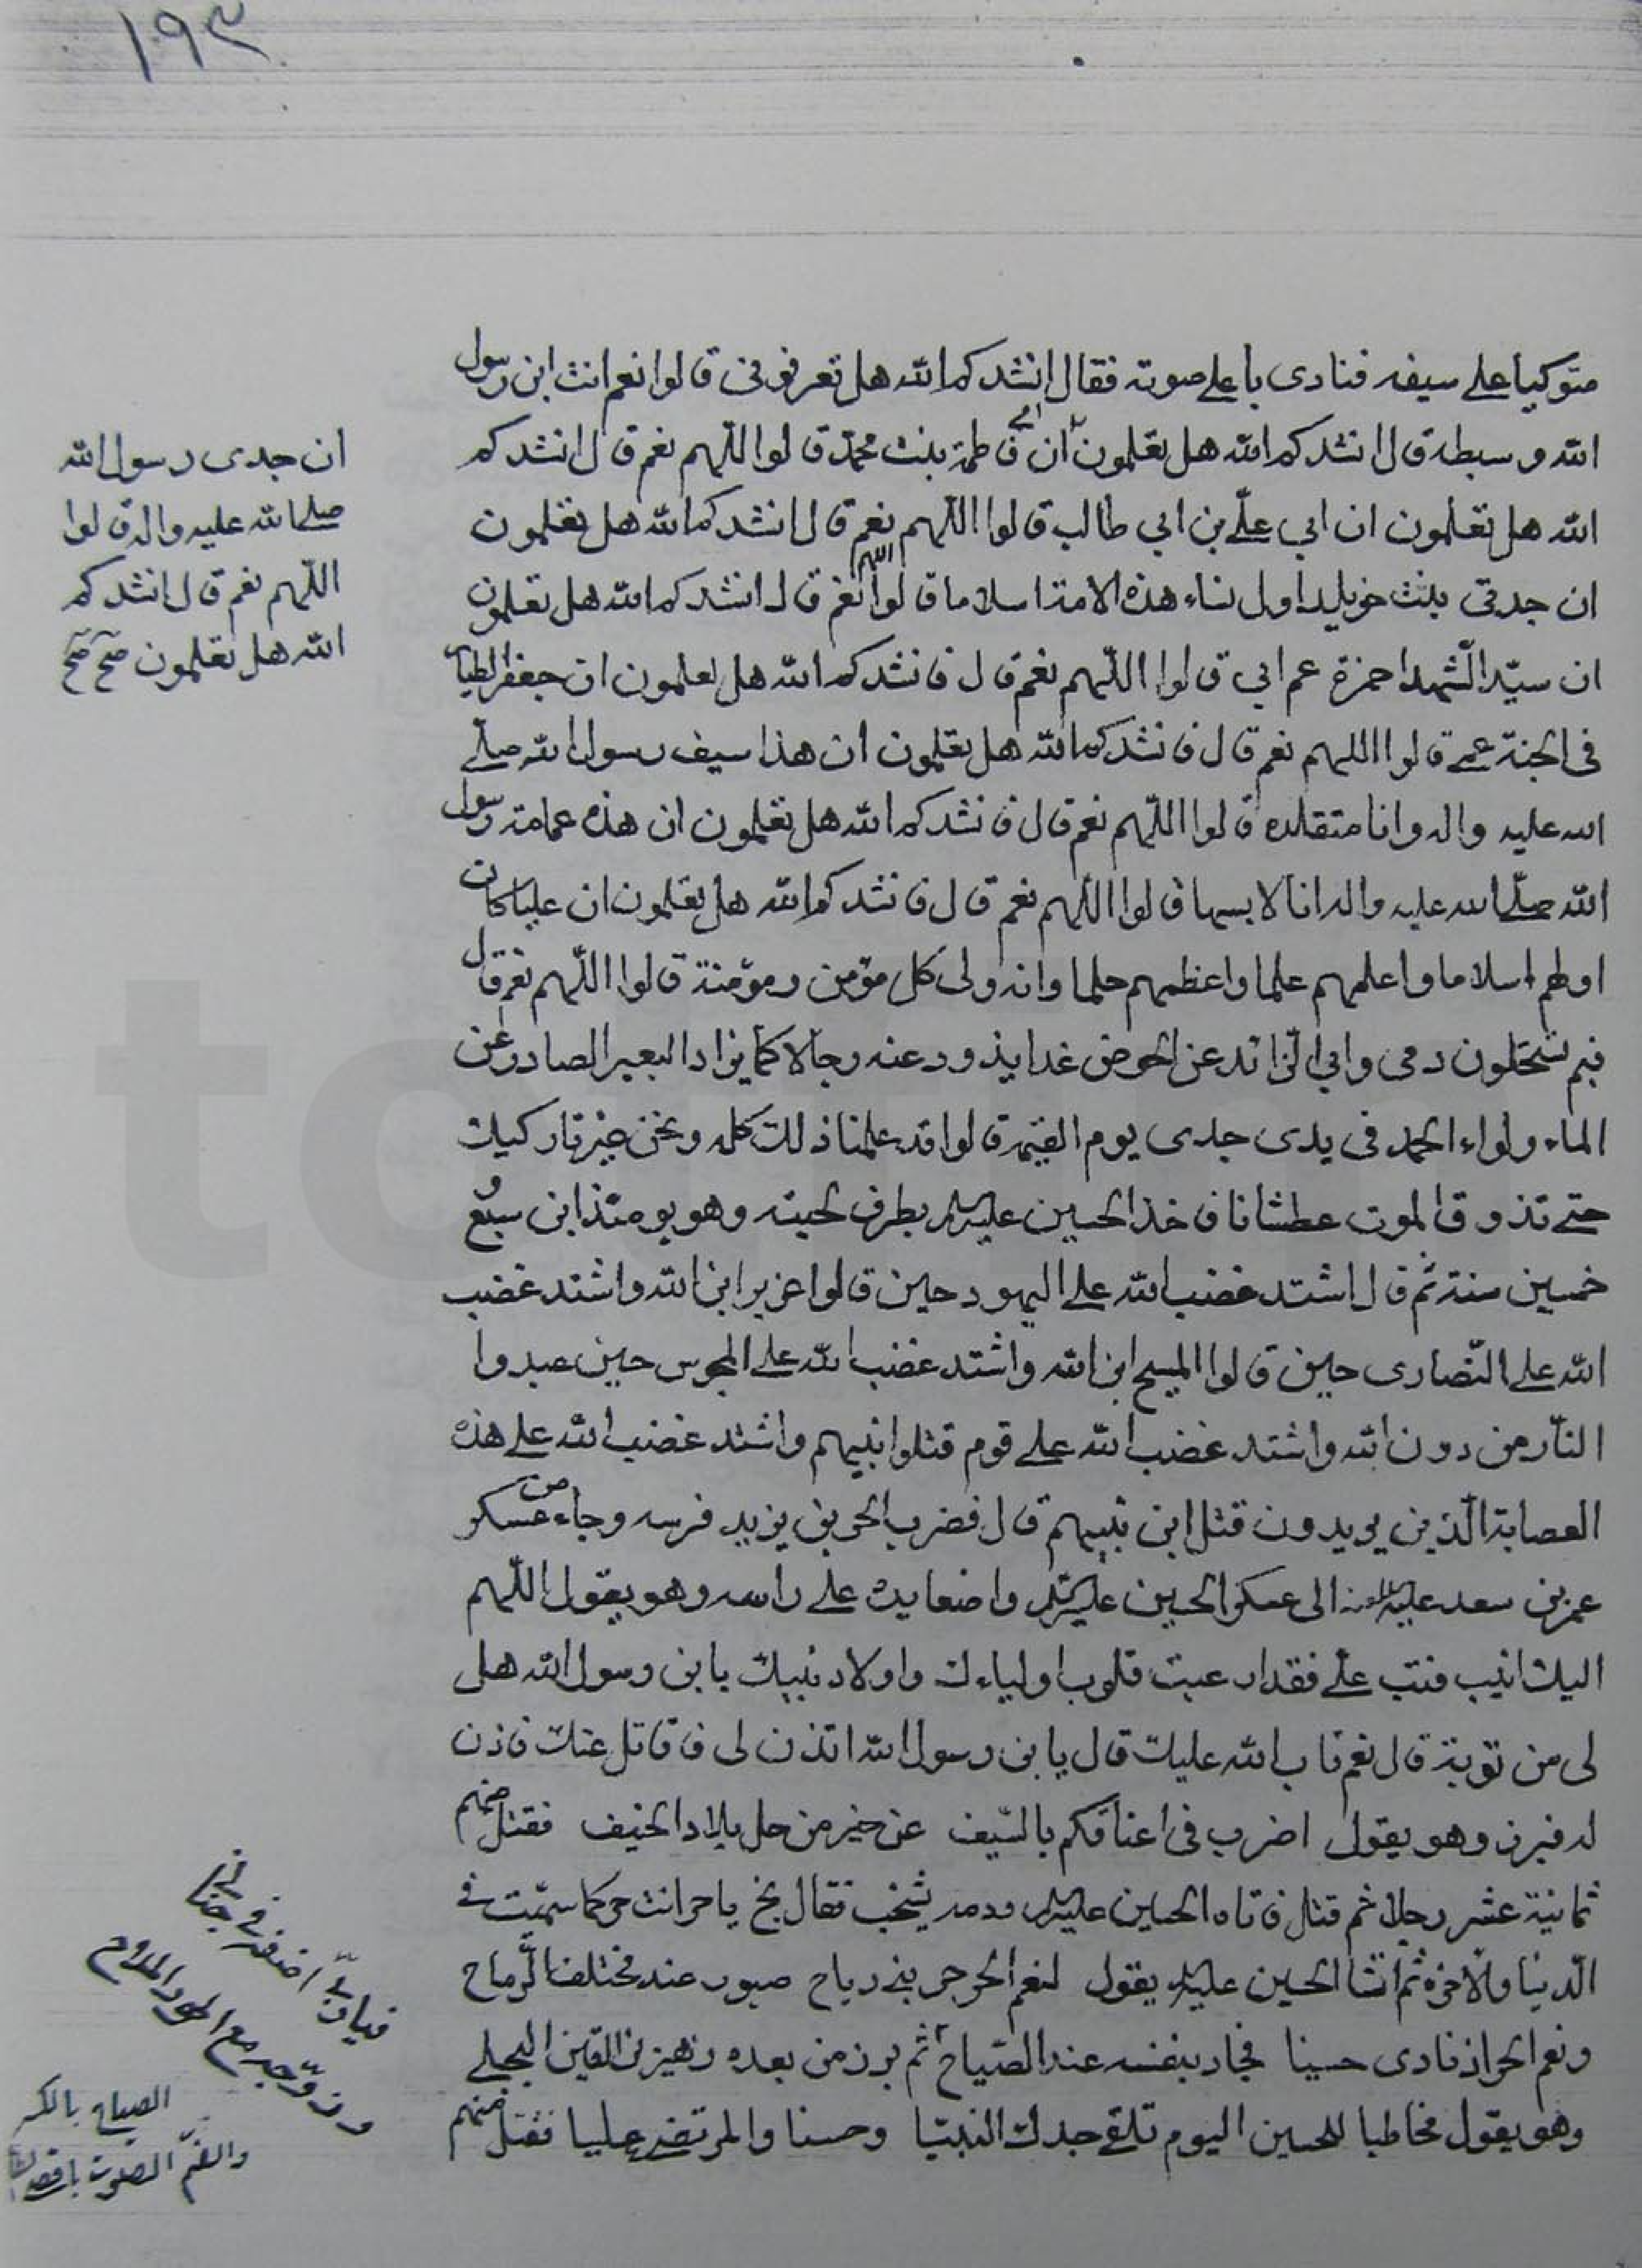 ١٩٣
متوكيا على سيفه فنادى بأعلى صوته فقال انشدكم الله هل تعرفوني قالوا نعم انت ابن رسول
الله و سبطه قال انشدكم الله هل تعلمون ان امي فاطمة بنت محمد قالوا اللهم نعم قال انشدكم
الله هل تعلمون ان ابي علي بن ابي طالب قالوا اللهم نعم قال انشدكم الله هل تعلمون
ان جدتي بنت خويلد اول نساء هذه الامة اسلاما قالوا اللهم نعم قال انشدكم الله هل تعلمون
ان سيّد الشهدا حمزة عم ابي قالوا اللهم نعم قال فانشدكم الله هل تعلمون ان جعفر الطيار
في الجنة عمي قالوا اللهم نعم قال فانشدكم الله هل تعلمون ان هذا سيف رسول الله صلى
الله عليه واله وانا متقلده قالوا اللهم نعم قال فانشدكم الله هل تعلمون ان هذه عمامة رسول
الله صلى الله عليه واله انا لابسها قالوا اللهم نعم قال فانشدكم الله هل تعلمون ان عليا كان
اولهم اسلاما واعلمهم علما واعظمهم حلما وانه ولى كل مؤمن ومؤمنة قالوا اللهم نعم قال
فبم تستحلون دمى وابي الزائد عن الحوض غدا يذود عنه رجالا كما يزاد البعير الصادر عن
الماء ولواء الحمد في يدى جدى يوم القيمة قالوا قد علمنا ذلك كله ونحن غير تاركيك
حتى تذوق الموت عطشانا فاخذ الحسين عليه السلام بطرف لحيته وهو يومئذ ابن سبع و
خمسين سنة ثم قال اشتد غضب الله على اليهود حين قالوا عزير ابن الله واشتد غضب
الله على النّصارى حين قالوا المسيح ابن الله واشتد غضب الله على المجوس حين عبدوا
النّار من دون الله واشتد غضب الله على قوم قتلوا نبيهم واشتد غضب الله على هذه
العصابة الّذين يريدون قتل ابن نبيهم قال فضرب الحر بن يزيد فرسه وجاء من عسكر
عمر بن سعد عليه اللعنة الى عسكر الحسين عليه السلام واضعا يده على راسه وهو يقول اللّهم
اليك انيب فتب علي فقد ارعبت قلوب اولياءك واولاد نبيك يابن رسول الله هل
لى من توبة قال نعم تاب الله عليك قال يابن رسول الله ائذن لى فاقاتل عنك فاذن
له فبرز وهو يقول اضرب في اعناقكم بالسّيف عن خير من حل بلاد الخيف فقتل منهم
ثمانية عشر رجلا ثم قتل فاتاه الحسين عليه السلام ودمه يشخب فقال بخ ياحر انت حر كما سمّيت في
الدّنيا والاخرة ثم انشا الحسين عليه السلام يقول لنعم الحر حر بني رياح صبور عند مختلف الرّماح
ونعم الحر اذ نادى حسينا فجاد بنفسه عند الصّياح ثم برز من بعده زهير بن القين البجلي
وهو يقول مخاطبا للحسين اليوم تلقى جدك النبيّا وحسنا والمرتضى عليا فقتل منهم
ان جدى رسول الله
صلى الله عليه واله قالوا
اللّهم نعم قال انشدكم
الله هل تعلمون صح صح
فيا ربّ اضفه في جنان
وزوّجه مع الحور الملاح
الصياح بالكسر
والضّم الصوت باقصى